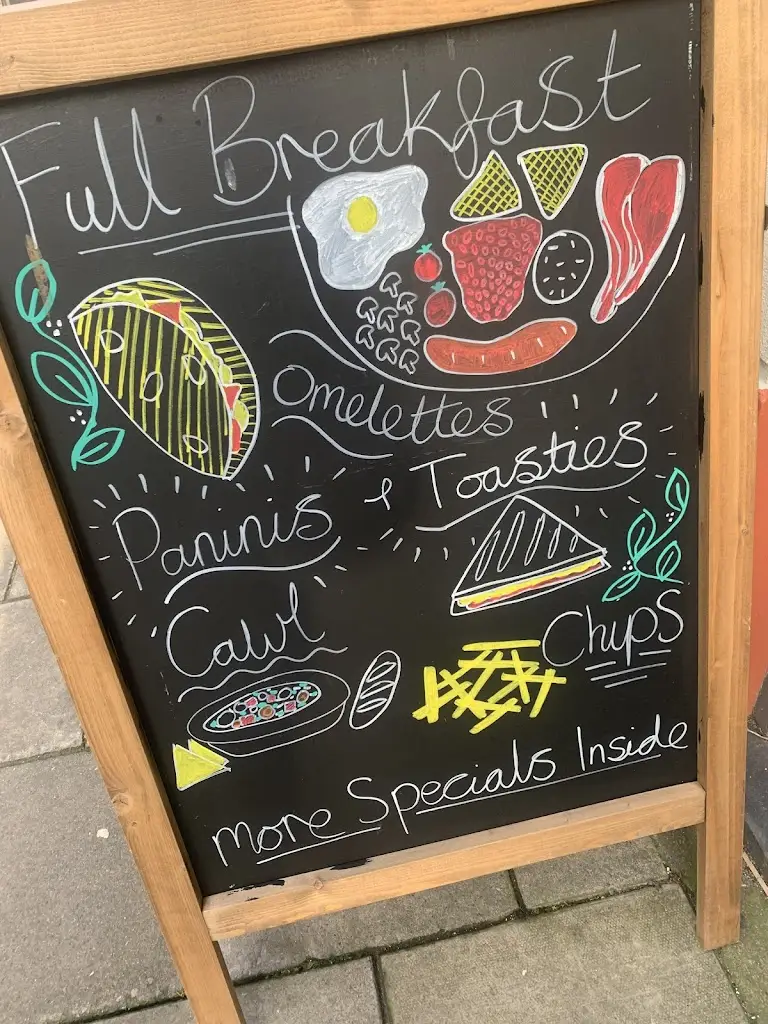 Full Breakfast
Omelettes
Paninis & Toasties
Cawl
Chips
More Specials Inside